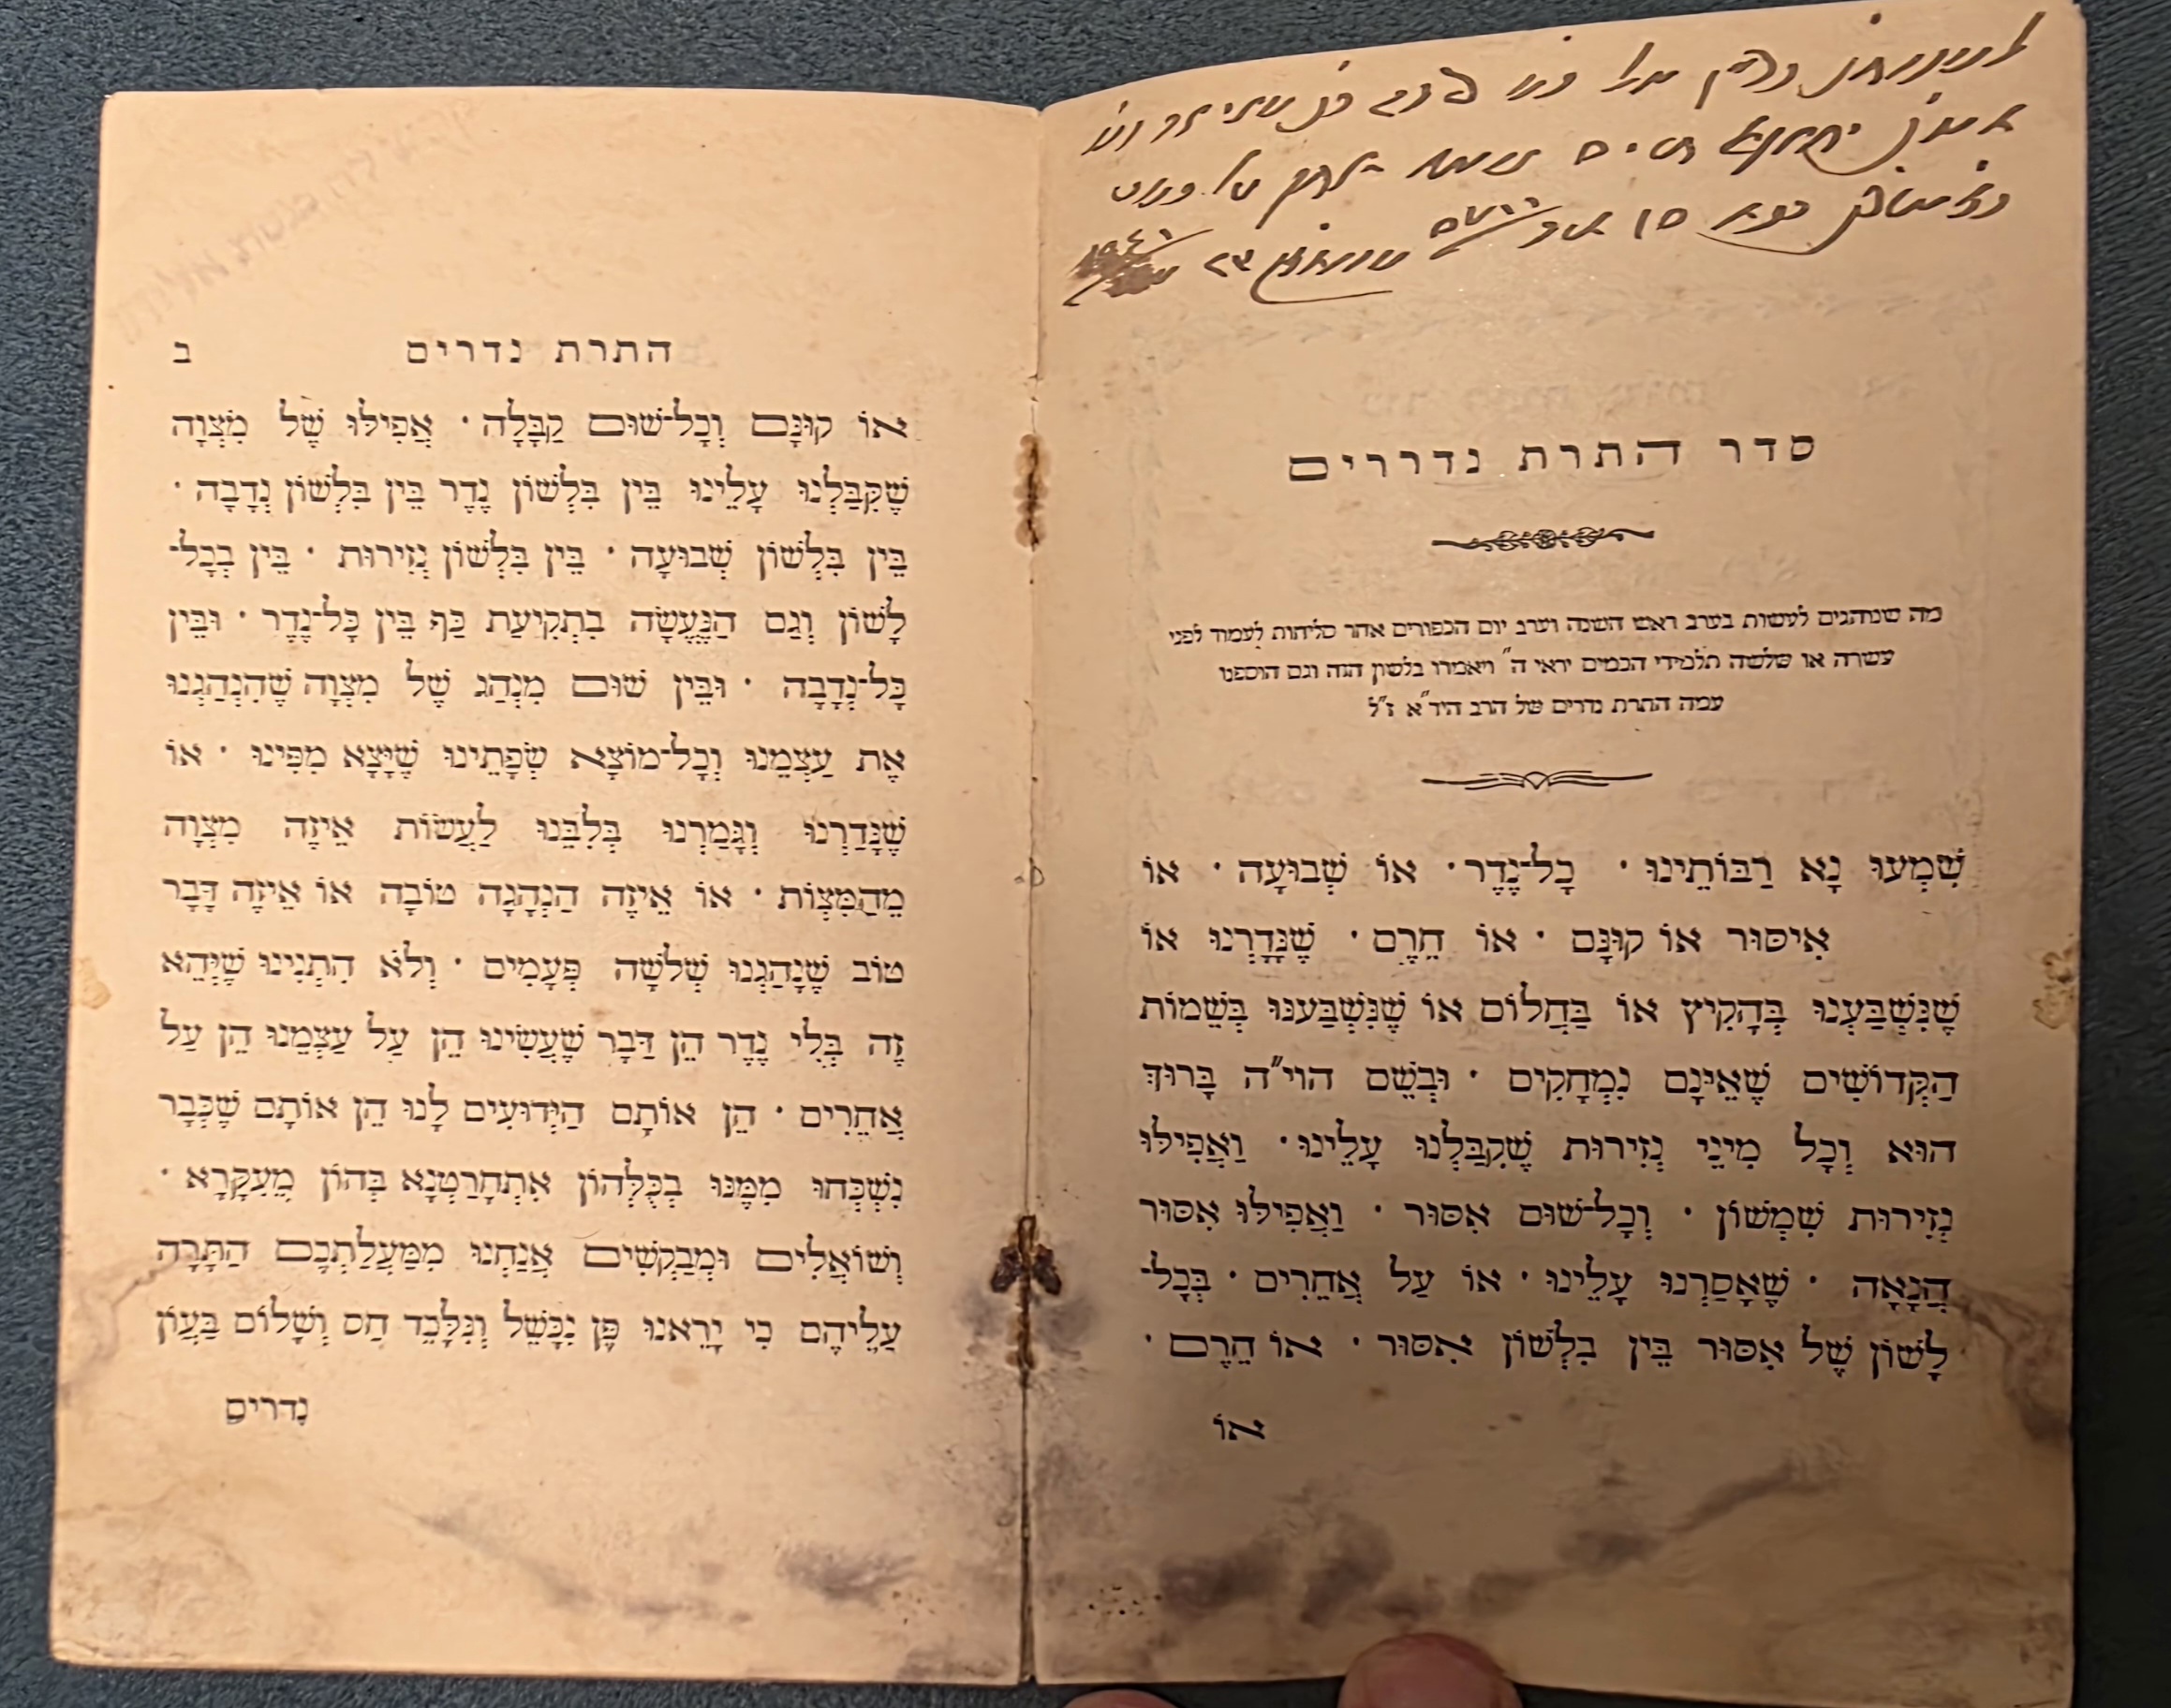 סדר התרת נדררים
מה שנוהגים לעשות בערב ראש השנה וערב יום הכפורים אחר סליחות לעמוד לפני
עשרה או שלשה תלמידי חכמים יראי ה" ויאמרו בלשון הזה וגם הוספנו
עמה התרת נדרים של הרב היד"א ז"ל
שִׁמְעוּ נָא רַבּוֹתֵינוּ · כָל־נֶדֶר · אוֹ שְׁבוּעָה · אוֹ
אִיסוּר אוֹ קוּנָּם · אוֹ חֵרֶם · שֶׁנָּדָרְנוּ אוֹ
שֶׁנִּשְׁבַּעְנוּ בְּהָקִיץ אוֹ בַּחֲלוֹם אוֹ שֶׁנִּשְׁבַּעְנוּ בְּשֵׁמוֹת
הַקְּדוֹשִׁים שֶׁאֵינָם נִמְחָקִים · וּבְשֵׁם הוי"ה בָּרוּךְ
הוּא וְכָל מִינֵי נְזִירוּת שֶׁקִבַּלְנוּ עָלֵינוּ · וַאֲפִילוּ
נְזִירוּת שִׁמְשׁוֹן · וְכָל־שׁוּם אִסּוּר · וַאֲפִילוּ אִסּוּר
הֲנָאָה · שֶׁאָסַרְנוּ עָלֵינוּ · אוֹ עַל אֲחֵרִים · בְּכָל־
לָשׁוֹן שֶׁל אִסּוּר בֵּין בִּלְשׁוֹן אִסּוּר · אוֹ חֵרֶם ·
אוֹ
התרת נדרים ב
אוֹ קוּנָּם וְכָל־שׁוּם קַבָּלָה · אֲפִילוּ שֶׁל מִצְוָה
שֶׁקִּבַּלְנוּ עָלֵינוּ בֵּין בִּלְשׁוֹן נֶדֶר בֵּין בִּלְשׁוֹן נְדָבָה ·
בֵּין בִּלְשׁוֹן שְׁבוּעָה · בֵּין בִּלְשׁוֹן נְזִירוּת · בֵּין בְּכָל־
לָשׁוֹן וְגַם הַנֶּעֱשָׂה בִתְקִיעַת כַּף בֵּין כָּל־נֶדֶר · וּבֵין
כָּל־נְדָבָה · וּבֵין שׁוּם מִנְהַג שֶׁל מִצְוָה שֶׁהִנְהַגְנוּ
אֶת עַצְמֵנוּ וְכָל־מוֹצָא שְׂפָתֵינוּ שֶׁיָּצָא מִפִּינוּ · אוֹ
שֶׁנָּדַרְנוּ וְגָמַרְנוּ בְּלִבֵּנוּ לַעֲשׂוֹת אֵיזֶה מִצְוָה
מֵהַמִּצְוֹת · אוֹ אֵיזֶה הַנְהָגָה טוֹבָה אוֹ אֵיזֶה דָּבָר
טוֹב שֶׁנָהַגְנוּ שְׁלֹשָׁה פְּעָמִים · וְלֹא הִתְנִינוּ שֶׁיְּהֵא
זֶה בְּלִי נֶדֶר הֵן דַּבָר שֶׁעָשִׂינוּ הֵן עַל עַצְמֵנוּ הֵן עַל
אֲחֵרִים · הֵן אוֹתָם הַיְּדוּעִים לָנוּ הֵן אוֹתָם שֶׁכְּבָר
נִשְׁכְּחוּ מִמֶּנּוּ בְּכֻלְּהוֹן אִתְחָרַטְנָא בְּהוֹן מֵעִקָּרָא ·
וְשׁוֹאֲלִים וּמְבַקְשִׁים אֲנַחְנוּ מִמַּעֲלַתְכֶם הַתָּרָה
עֲלֵיהֶם כִּי יָרֵאנוּ פֶּן נִכָּשֵׁל וְנִלָּכֵד חַס וְשָׁלוֹם בַּעֲוֹן
נְדרים